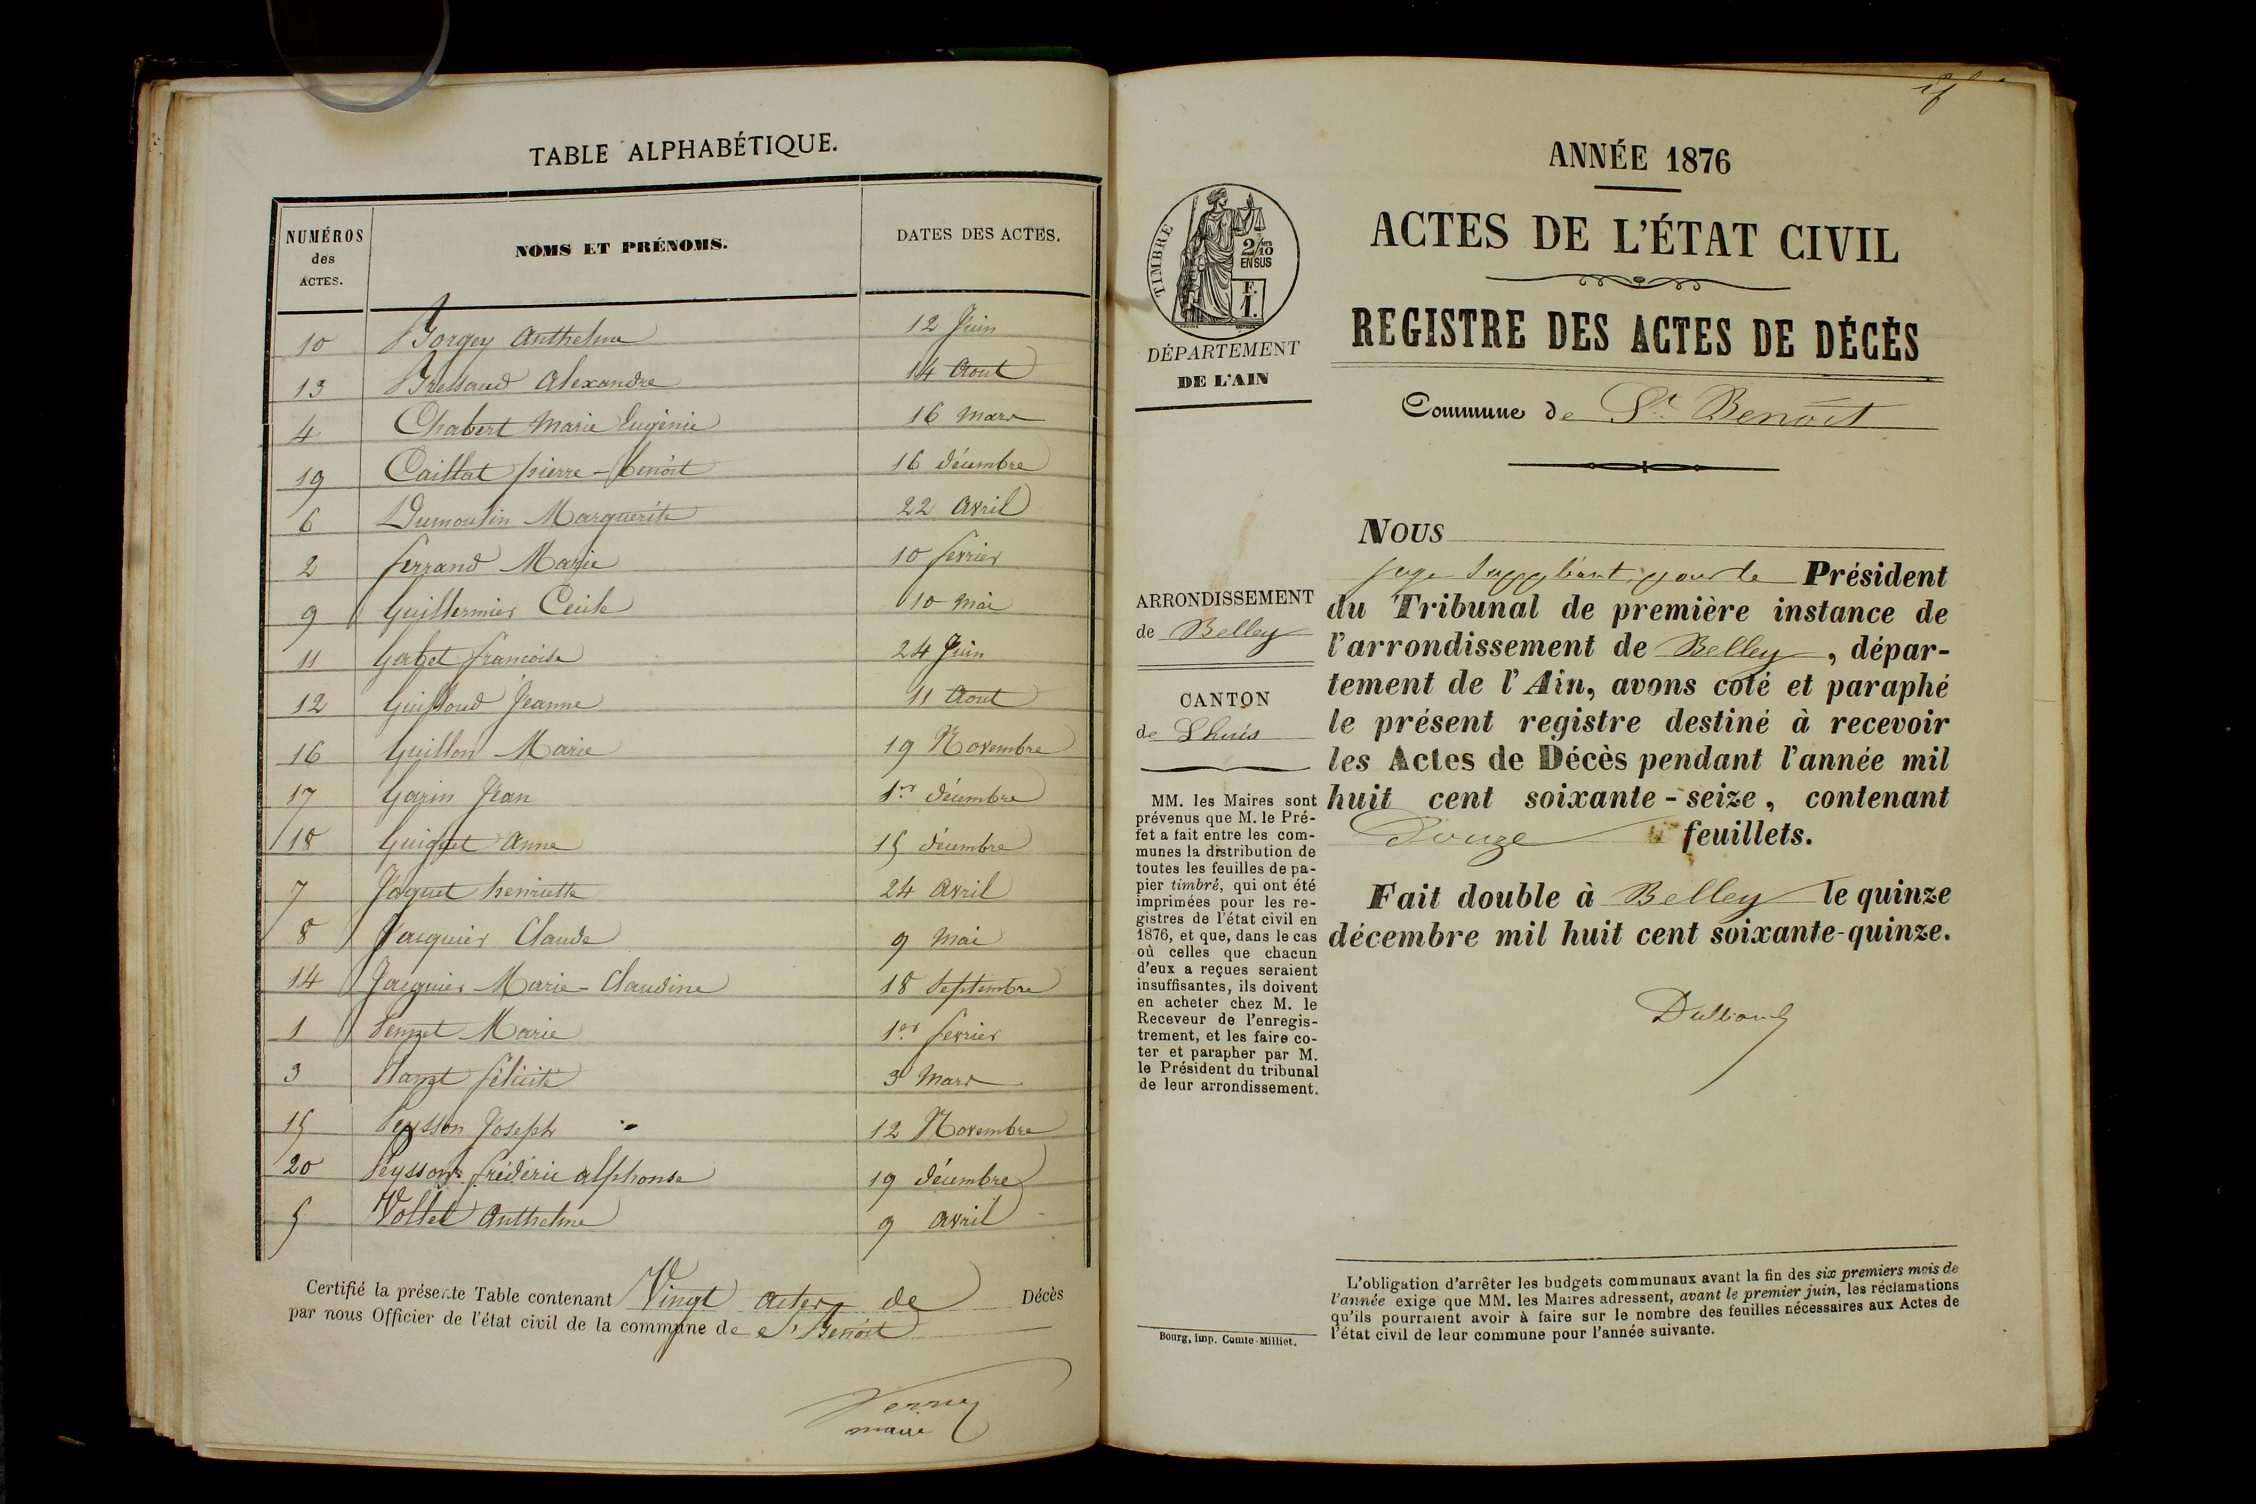 TABLE ALPHABÉTIQUE.
NUMÉROS
des
ACTES.
NOMS ET PRÉNOMS.
DATES DES ACTES.
10 Borgey Anthelme 12 Juin
13 Bressaud Alexandre 14 Aout
4 Chabert Marie Eugénie 16 Mars
19 Caillat pierre-benoit 16 décembre
6 Dumoulin Marguerite 22 Avril
2 ferrand Marie 10 fevrier
9 Guillermier Cecile 10 Mai
11 Gobet francoise 24 Juin
12 Guilloud Jeanne 11 Aout
16 Guillon Marie 19 Novembre
17 Garin Jean 1er décembre
18 Guiguet Anne 15 décembre
7 Joguet henriette 24 Avril
8 Jacquier Claude 9 Mai
14 Jacquier Marie-Claudine 18 Septembre
1 Marie 1er fevrier
3 félicité 3 Mars
15 Peysson Joseph 12 Novembre
20 Peysson frédéric alphonse 19 décembre
5 Vollet Anthelme 9 Avril
Certifié la présente Table contenant Vingt actes de Décès
par nous Officier de l'état civil de la commune de St Benoit
maire
ANNÉE 1876
ACTES DE L'ÉTAT CIVIL
REGISTRE DES ACTES DE DÉCÈS
Commune de St. Benoit
TIMBRE
2/10
EN SUS
F.
1.
DÉPARTEMENT
DE L'AIN
ARRONDISSEMENT
de Belley
CANTON
de Lhuis
MM. les Maires sont
prévenus que M. le Pré-
fet a fait entre les com-
munes la distribution de
toutes les feuilles de pa-
pier timbré, qui ont été
imprimées pour les re-
gistres de l'état civil en
1876, et que, dans le cas
où celles que chacun
d'eux a reçues seraient
insuffisantes, ils doivent
en acheter chez M. le
Receveur de l'enregis-
trement, et les faire co-
ter et parapher par M.
le Président du tribunal
de leur arrondissement.
Bourg, imp. Comte-Milliet.
NOUS
juge Suppléant, pour le Président
du Tribunal de première instance de
l'arrondissement de Belley, dépar-
tement de l'Ain, avons coté et paraphé
le présent registre destiné à recevoir
les Actes de Décès pendant l'année mil
huit cent soixante-seize, contenant
Douze feuillets.
Fait double à Belley le quinze
décembre mil huit cent soixante-quinze.
L'obligation d'arrêter les budgets communaux avant la fin des six premiers mois de
l'année exige que MM. les Maires adressent, avant le premier juin, les réclamations
qu'ils pourraient avoir à faire sur le nombre des feuilles nécessaires aux Actes de
l'état civil de leur commune pour l'année suivante.